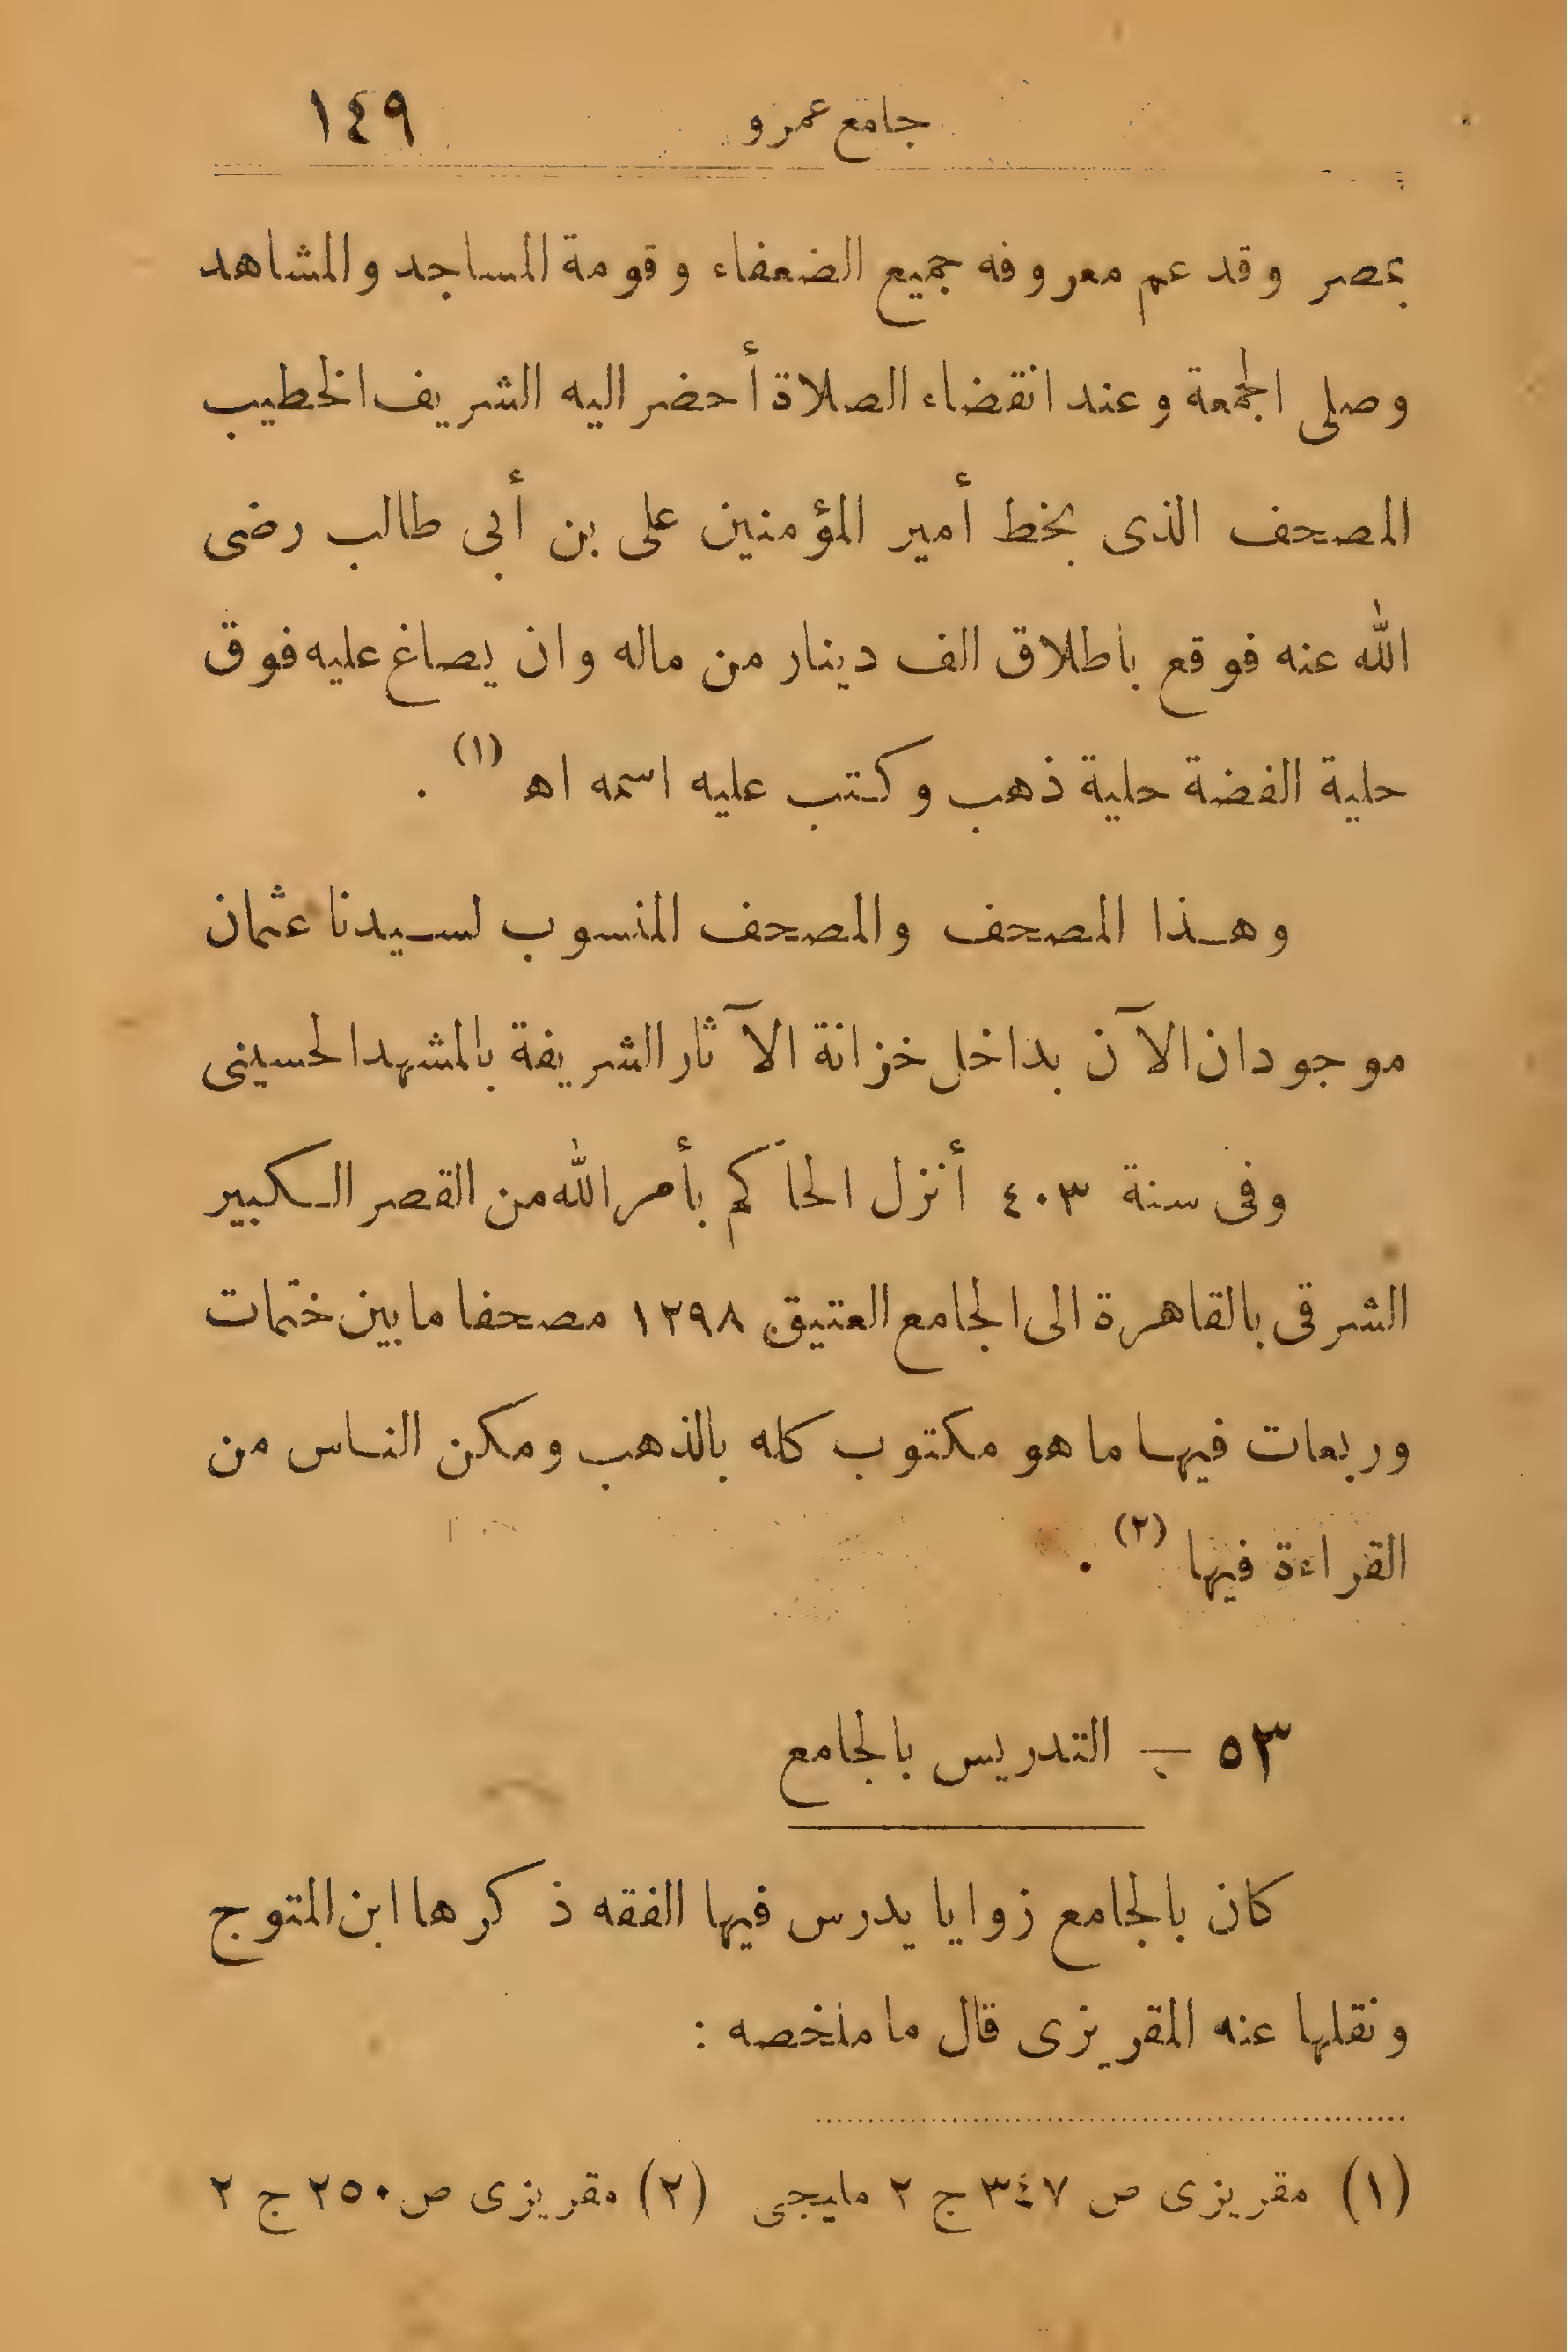 جامع عمرو ١٤٩
بمصر وقد عم معروفه جميع الضعفاء وقومة المساجد والمشاهد
وصلى الجمعة وعند انقضاء الصلاة أحضر اليه الشريف الخطيب
المصحف الذى بخط أمير المؤمنين على بن أبى طالب رضى
الله عنه فوقع باطلاق الف دينار من ماله وان يصاغ عليه فوق
حلية الفضة حلية ذهب وكتب عليه اسمه اه (١) .
وهذا المصحف والمصحف المنسوب لسيدنا عثمان
موجودان الآن بداخل خزانة الآثار الشريفة بالمشهد الحسينى
وفى سنة ٤٠٣ أنزل الحاكم بأمر الله من القصر الكبير
الشرقى بالقاهرة الى الجامع العتيق ١٢٩٨ مصحفا ما بين ختمات
وربعات فيها ما هو مكتوب كله بالذهب ومكن الناس من
القراءة فيها (٢) .
٥٣ — التدريس بالجامع
كان بالجامع زوايا يدرس فيها الفقه ذكرها ابن المتوج
ونقلها عنه المقريزى قال ما ملخصه :
(١) مقريزى ص ٣٤٧ ج ٢ مليجى (٢) مقريزى ص ٢٥٠ ج ٢